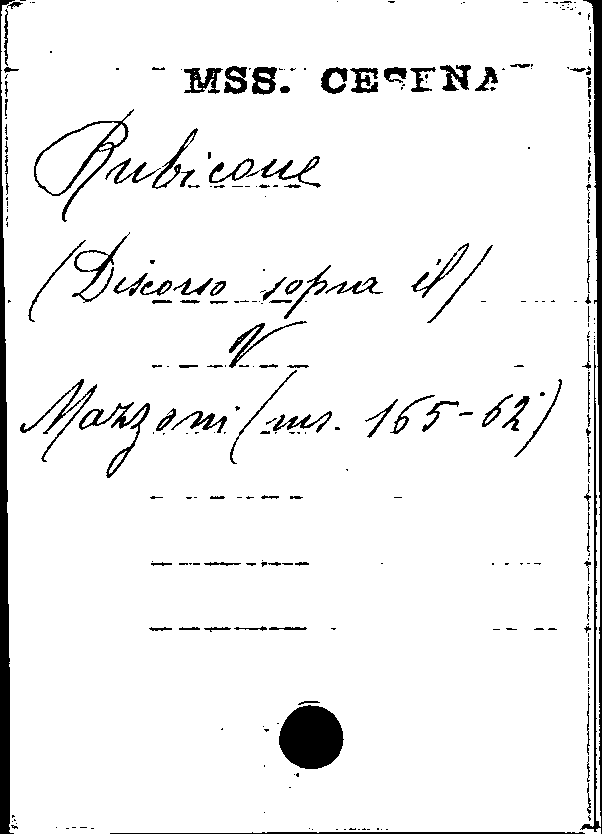 MSS. CESENA
Rubicone
(Discorso sopra il)
V
Mazzoni (ms. 165-62)